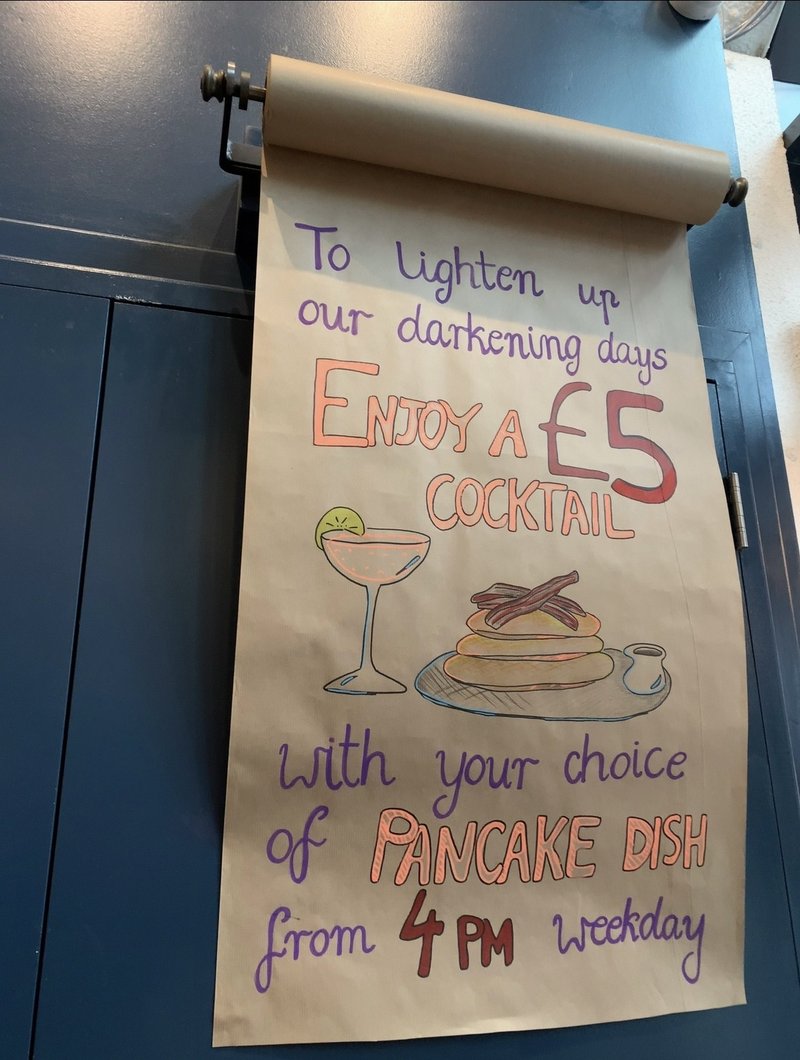 To lighten up
our darkening days
ENJOY A £5
COCKTAIL
with your choice
of PANCAKE DISH
from 4 PM weekday